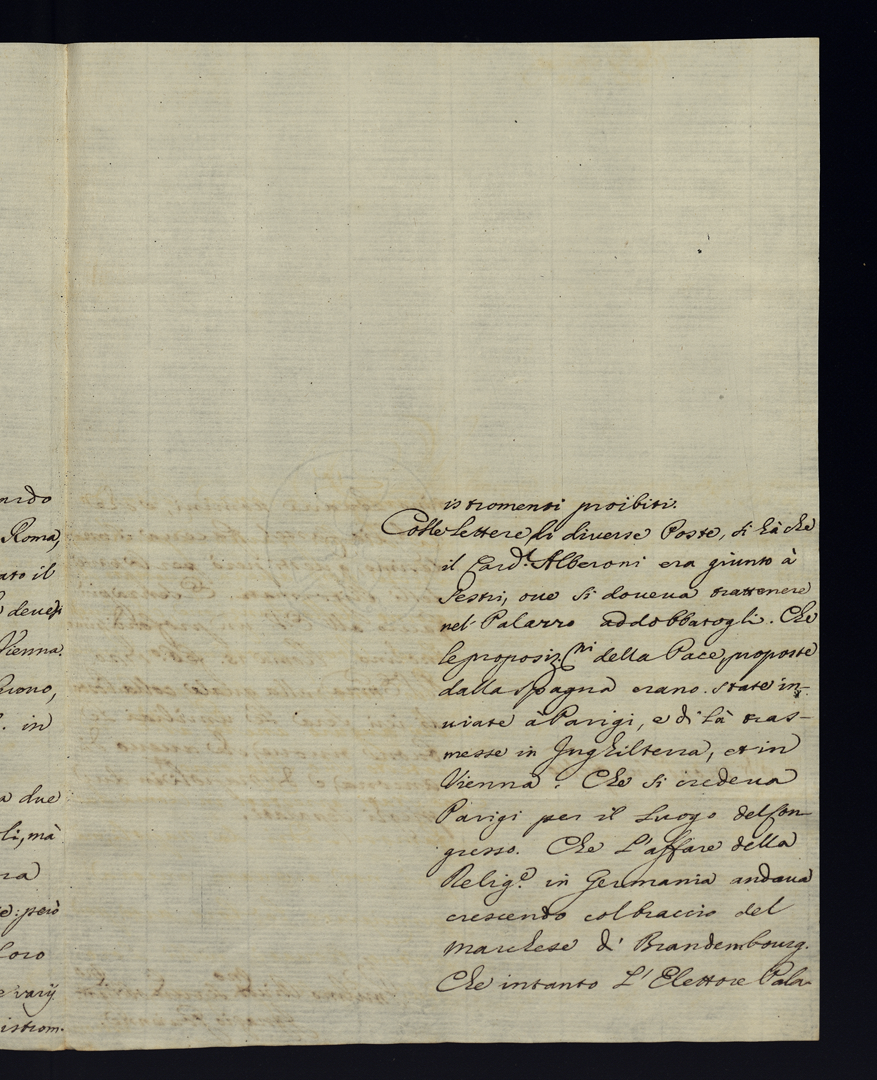 nido
Roma,
ato il
Vienna.
. in
a due
li, mà
ra
e: però
loro
e varij
istrom.
istromenti proibiti.
Colle lettere di diverse Poste, si hà che
il Card.l Alberoni era giunto à
Sestri, oue si doueua trattenere
nel Palazzo addobbatogli. Che
le proposiz.ni della Pace, proposte
dalla Spagna erano state in-
uiate à Parigi, e di là tras-
messe in Inghilterra, et in
Vienna. Che si credeua
Parigi per il Luogo del Con-
gresso. Che L'affare della
Relig.e in Germania andaua
crescendo col braccio del
Marchese di Brandembourg.
Che intanto L'Elettore Pala-